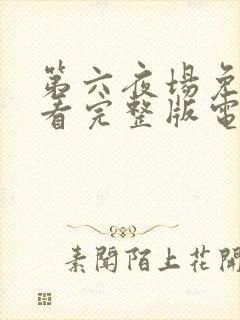 第六夜場免
看完整版電
素聞陌上花開